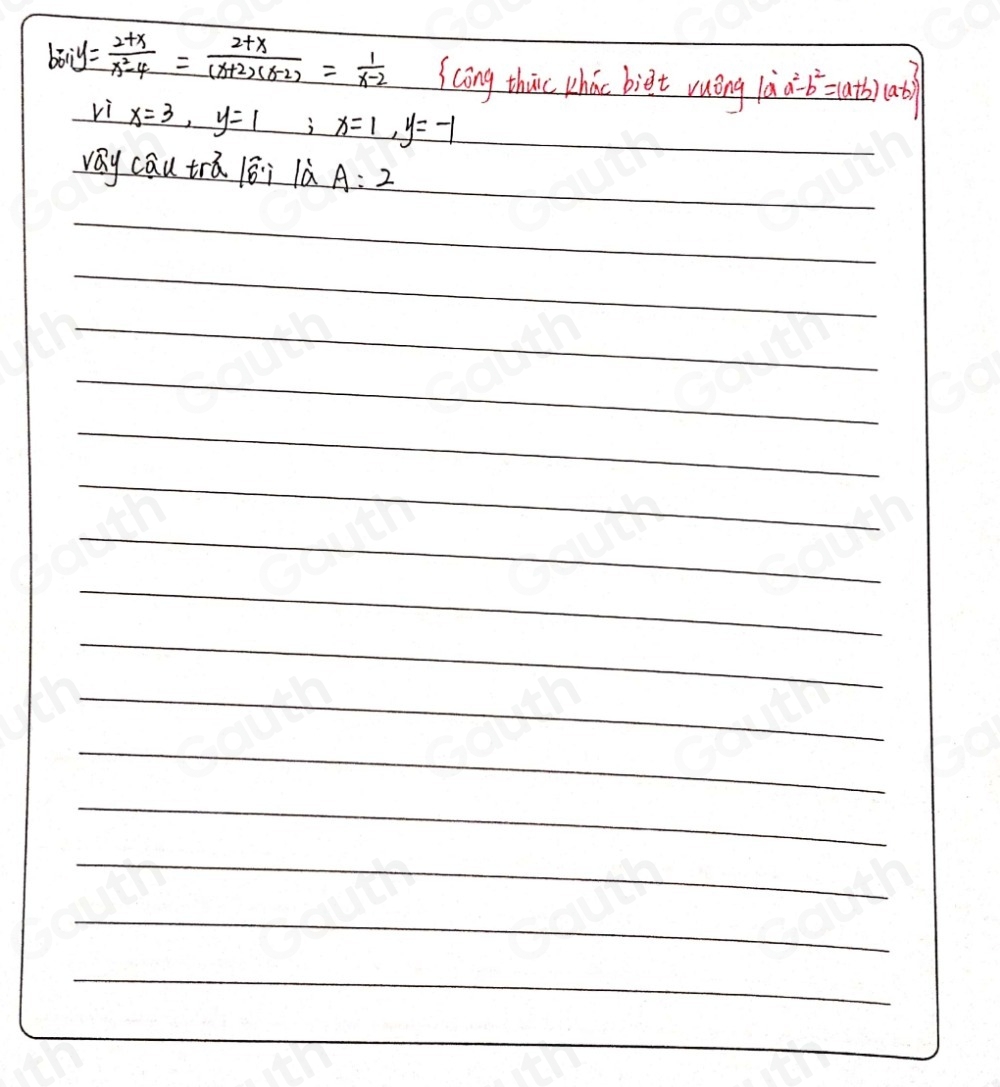 bởi y = \frac{2+x}{x²-4} = \frac{2+x}{(x+2)(x-2)} = \frac{1}{x-2} {công thức khác biệt vuông là a²-b²=(a+b)(a-b)}
vì x=3, y=1 ; x=1, y=-1
vậy câu trả lời là A: 2